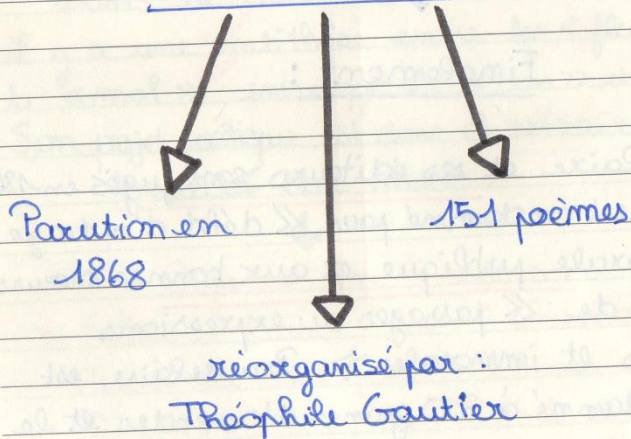 Parution en
1868
151 poèmes
réorganisé par :
Théophile Gautier